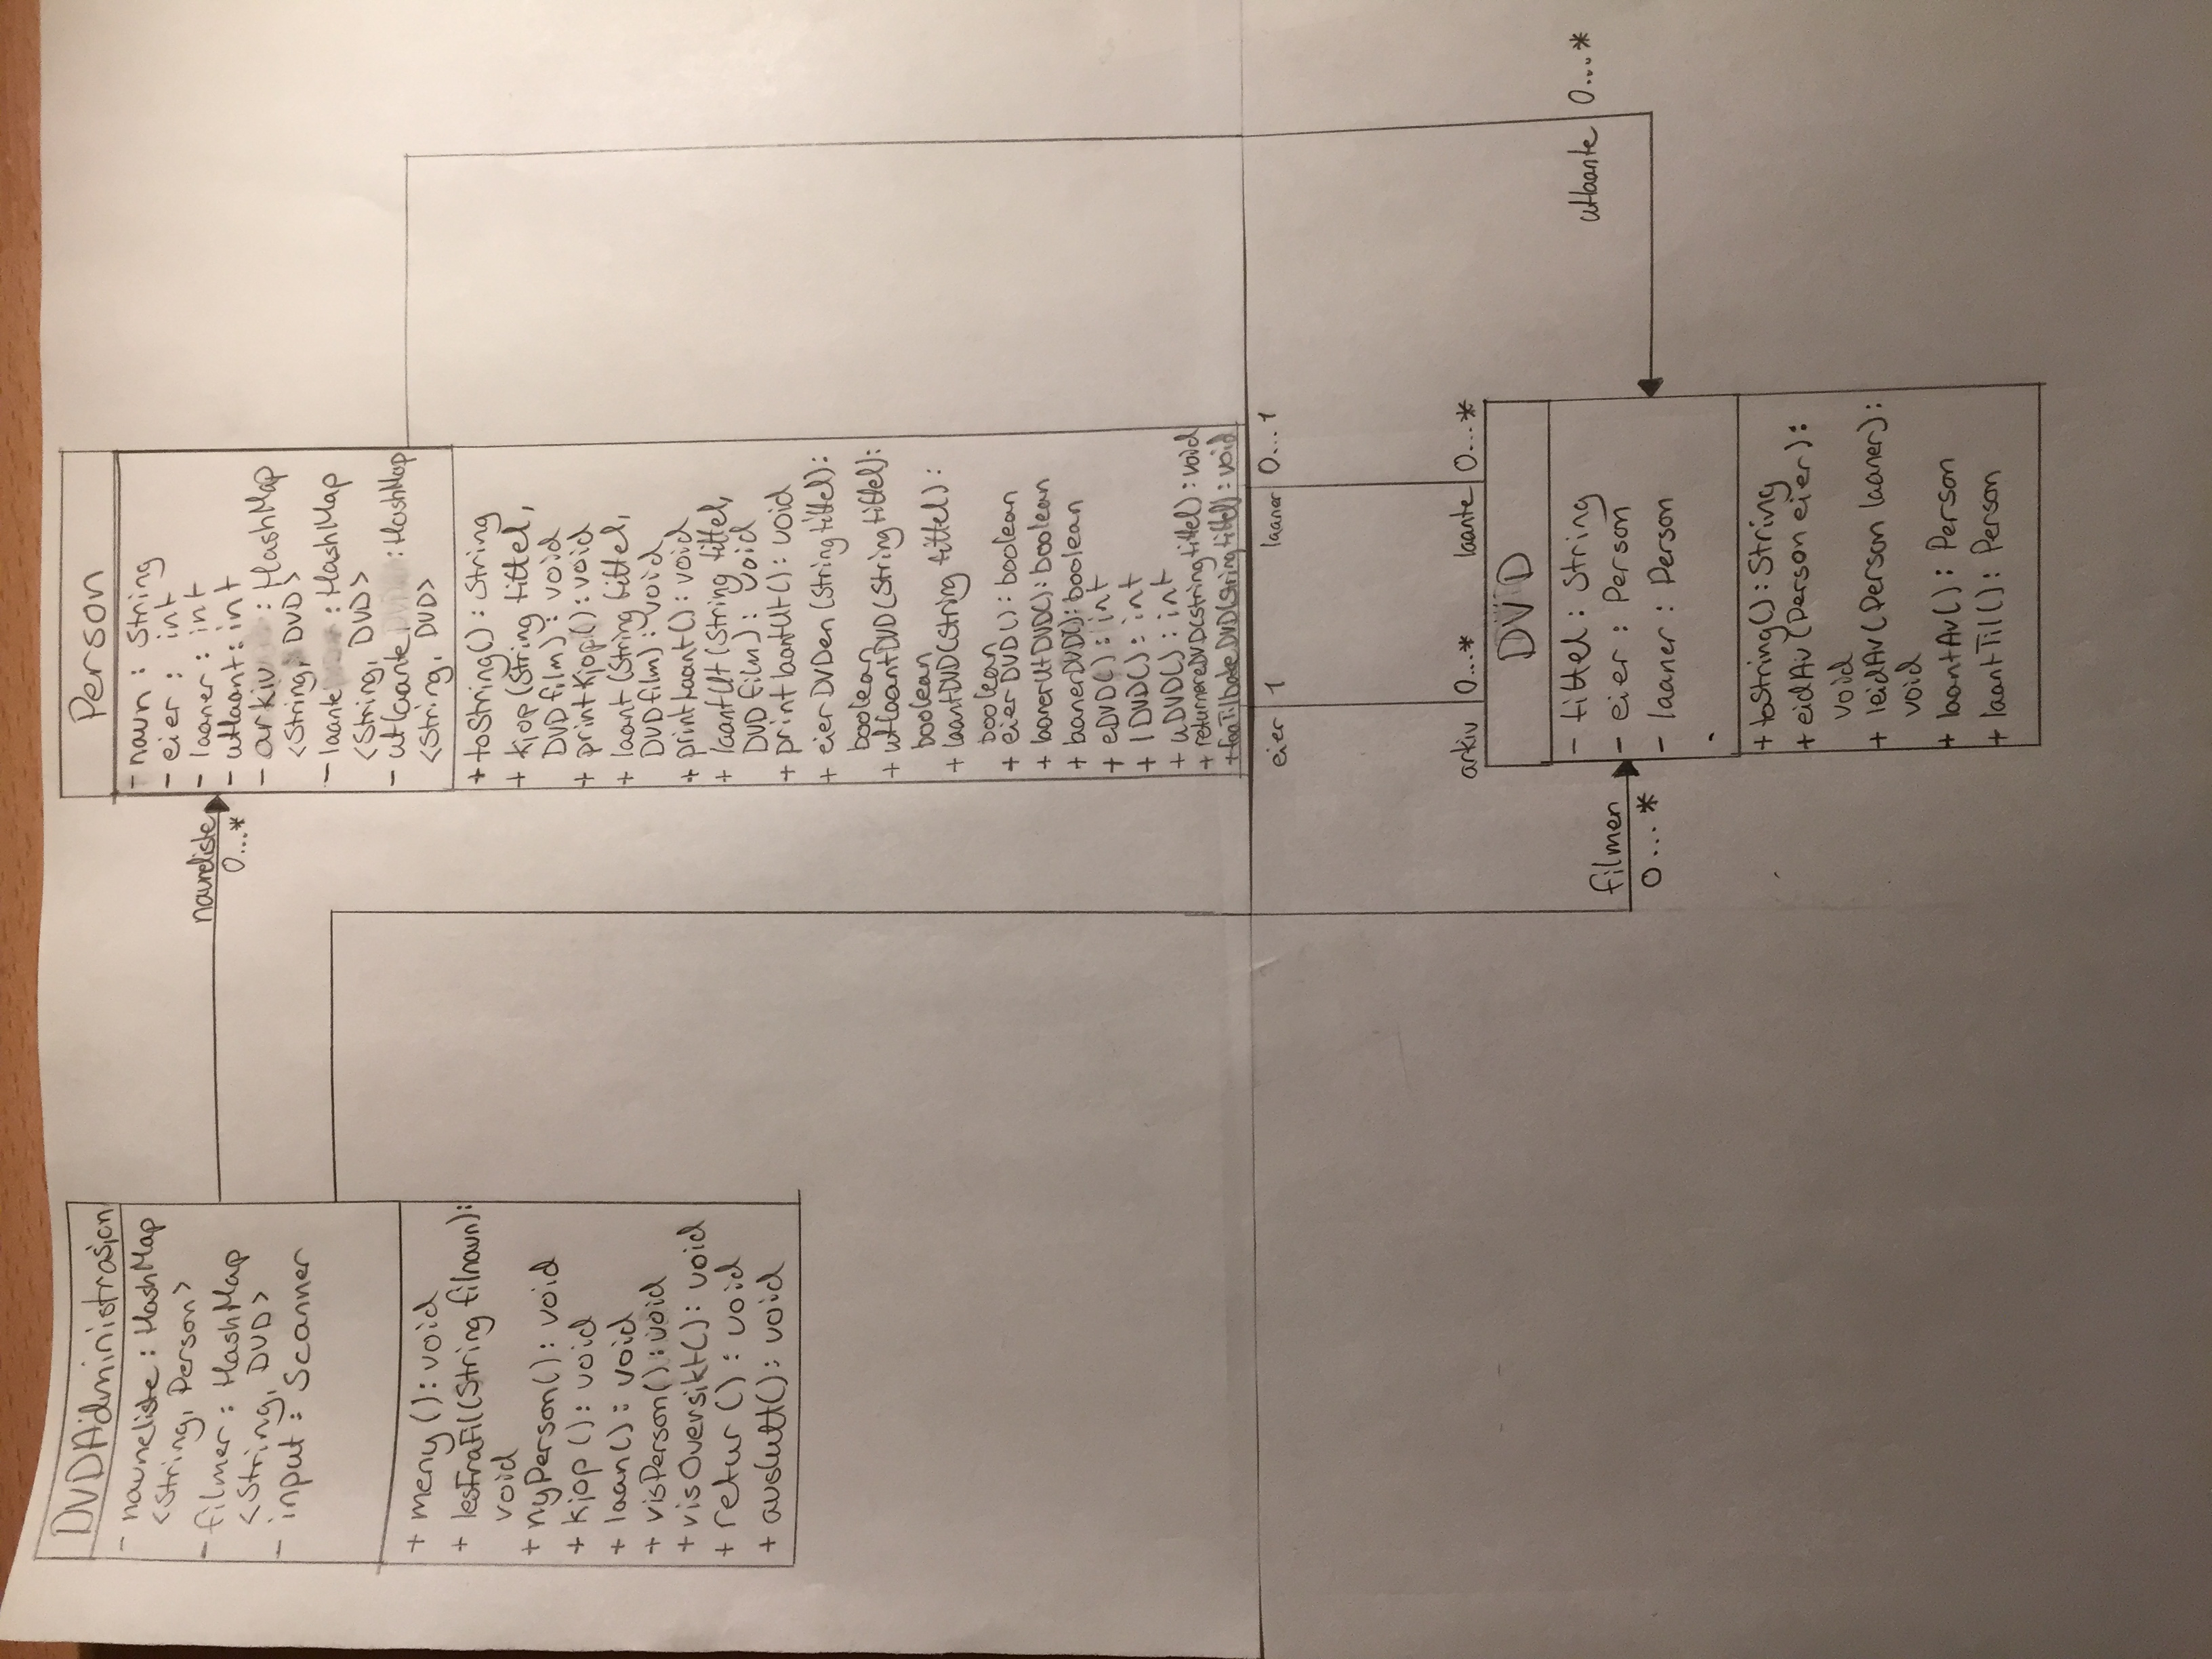 DVDAdministrasjon
- navneliste : HashMap
<String, Person>
- filmer : HashMap
<String, DVD>
- input : Scanner
+ meny () : void
+ lesFraFil(String filnavn):
void
+ nyPerson() : void
+ kjop () : void
+ laan() : void
+ visPerson() : void
+ visOversikt() : void
+ retur () : void
+ avslutt() : void
navneliste
0...*
Person
- navn : String
- eier : int
- laaner : int
- utlaant : int
- arkiv : HashMap
<String, DVD>
- laante : HashMap
<String, DVD>
- utlaante : HashMap
<String, DVD>
+ toString() : String
+ kjop (String tittel,
DVD film) : void
+ printKjop() : void
+ laant (String tittel,
DVD film) : void
+ printLaant() : void
+ laantUt (String tittel,
DVD film) : void
+ printLaantUt() : void
+ eierDVDen (String tittel) :
boolean
+ utlaantDVD (String tittel) :
boolean
+ laantDVD (String tittel) :
boolean
+ eierDVD() : boolean
+ laanerUtDVD() : boolean
+ laanerDVD() : boolean
+ eDVD() : int
+ lDVD() : int
+ uDVD() : int
+ returnereDVD(String tittel) : void
+ faaTilbakeDVD(String tittel) : void
eier 1 laaner 0...1
arkiv 0...* laante 0...*
DVD
- tittel : String
- eier : Person
- laaner : Person
+ toString() : String
+ eidAv (Person eier) :
void
+ leidAv (Person laaner) :
void
+ laantAv() : Person
+ laantTil() : Person
filmen
0...*
utlaante 0...*